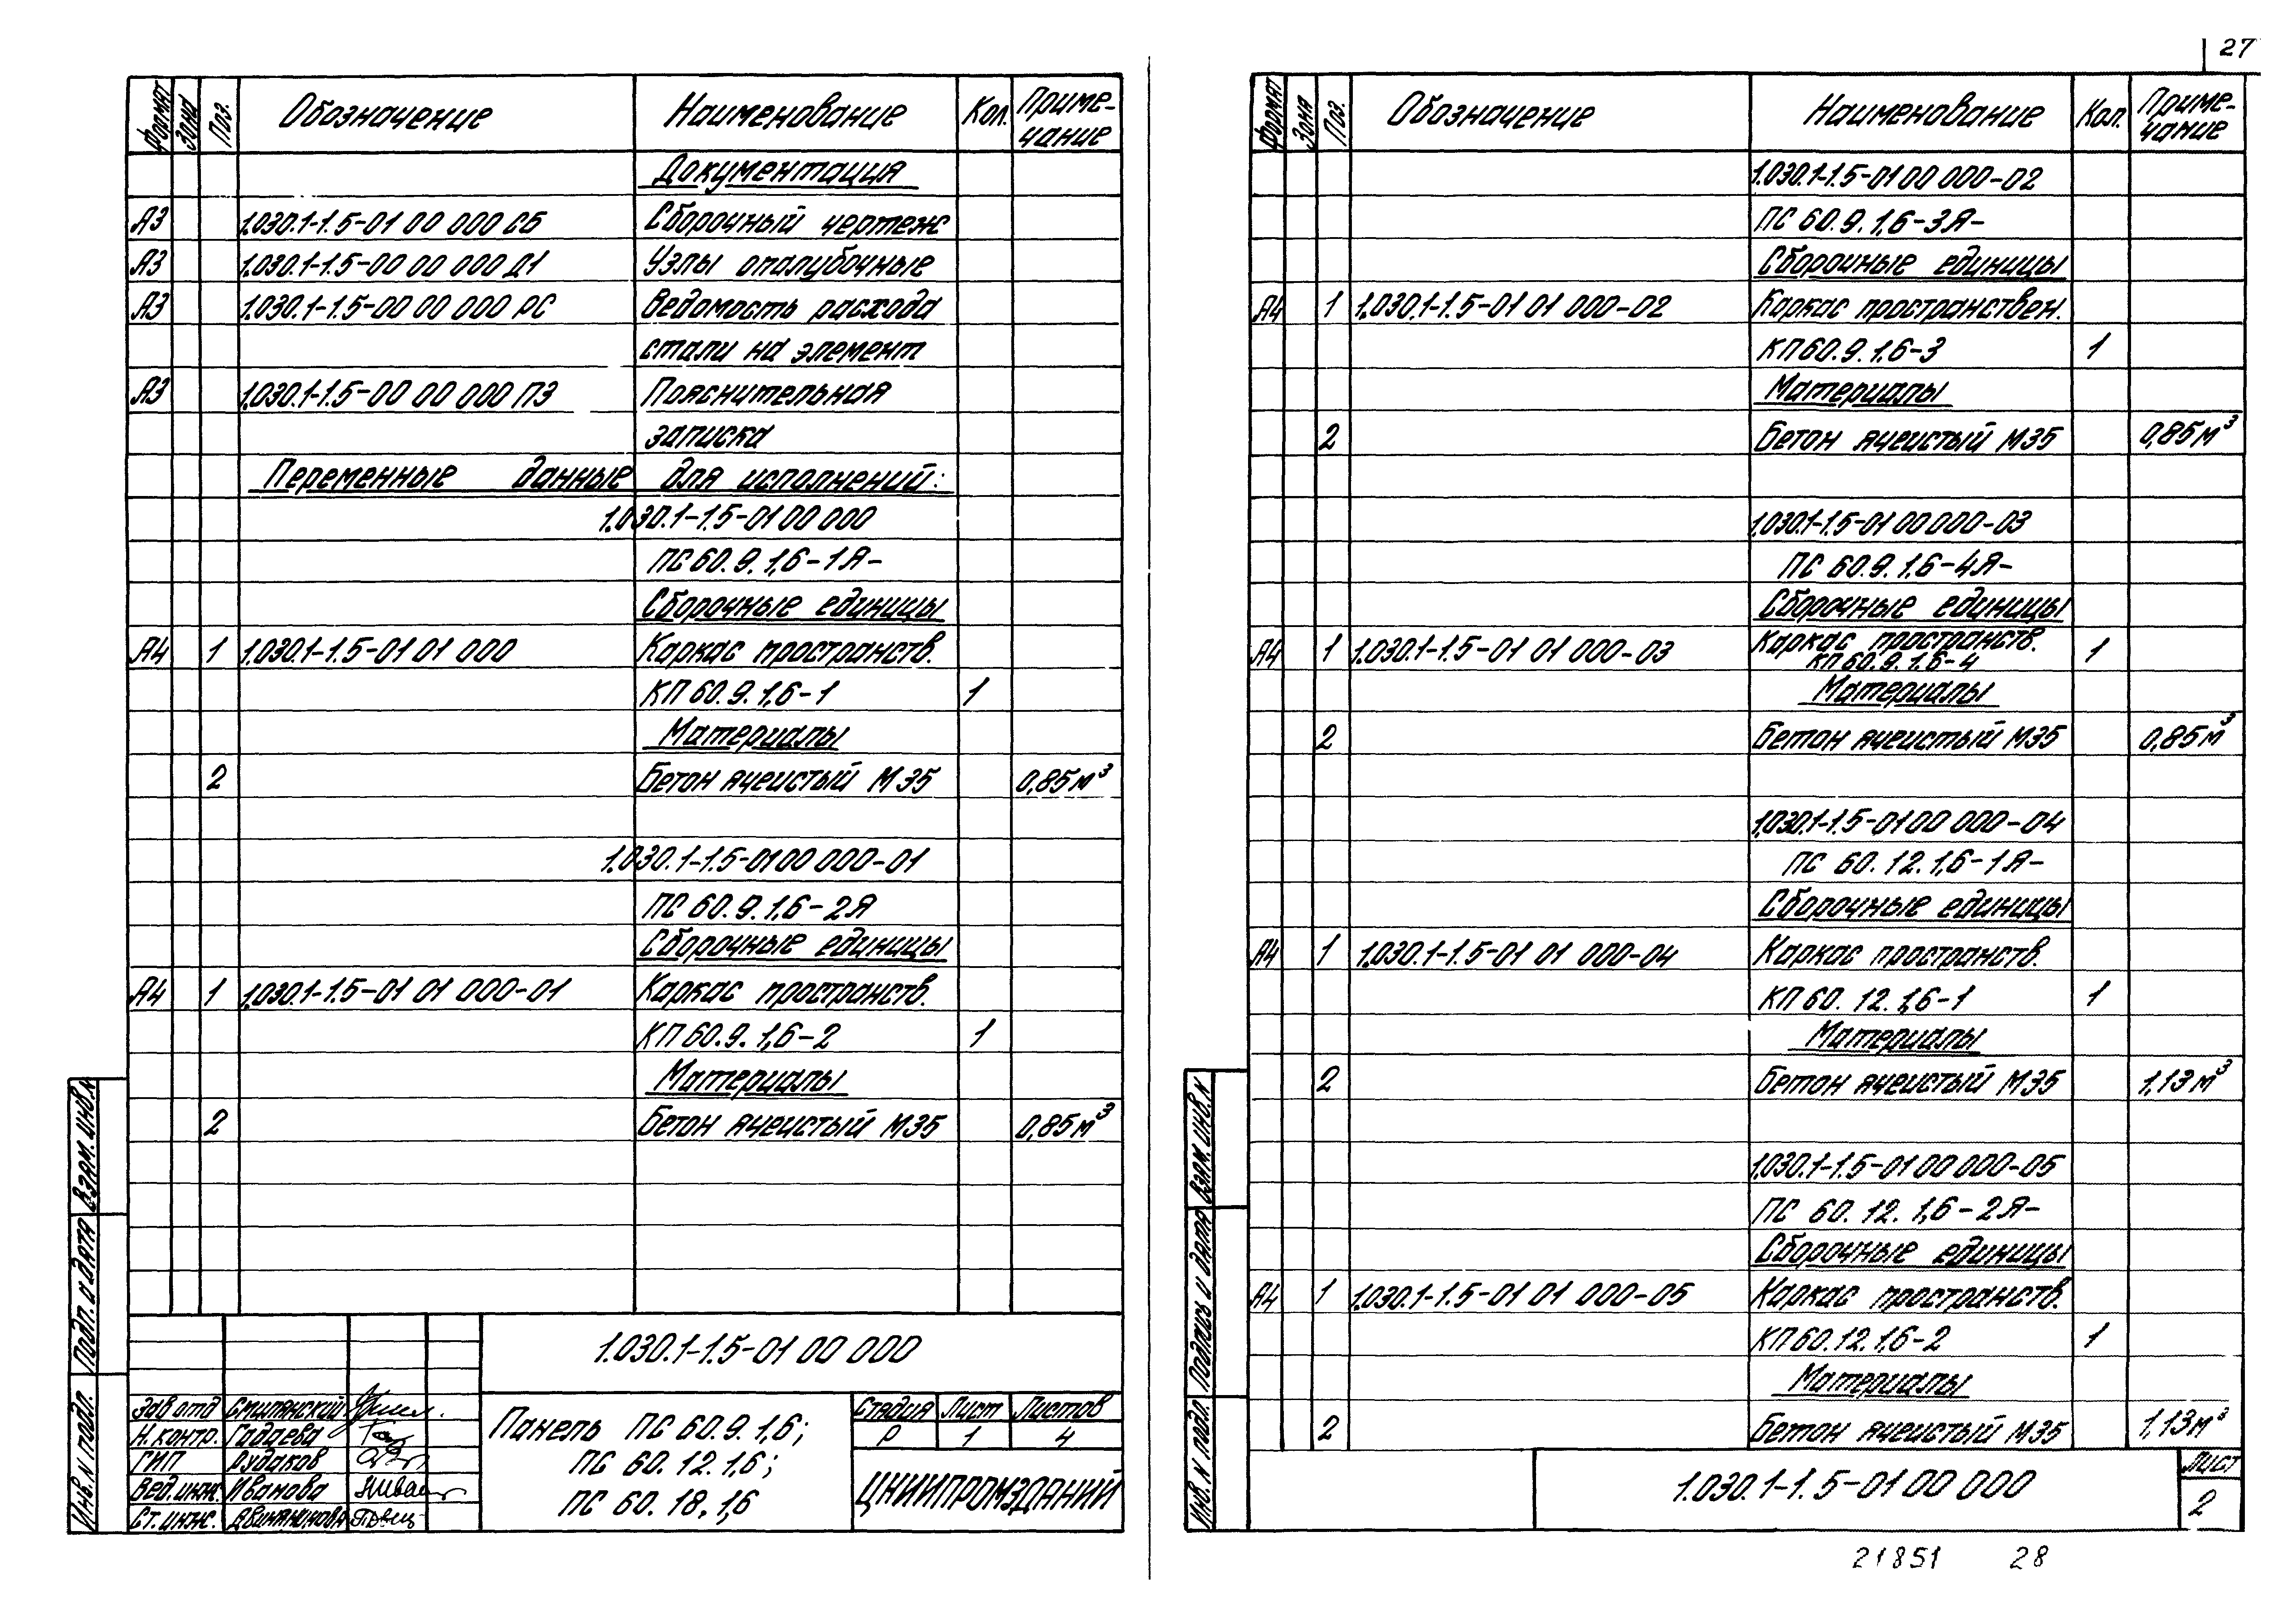 27
Формат Зона Поз. Обозначение Наименование Кол. Приме-
чание
Документация
А3 1.030.1-1.5-01 00 000 СБ Сборочный чертеж
А3 1.030.1-1.5-00 00 000 Д1 Узлы опалубочные
А3 1.030.1-1.5-00 00 000 РС Ведомость расхода
стали на элемент
А3 1.030.1-1.5-00 00 000 ПЗ Пояснительная
записка
Переменные данные для исполнений:
1.030.1-1.5-01 00 000
ПС 60.9.1,6-1Я-
Сборочные единицы
А4 1 1.030.1-1.5-01 01 000 Каркас пространств.
КП 60.9.1,6-1 1
Материалы
2 Бетон ячеистый М35 0,85м³
1.030.1-1.5-01 00 000-01
ПС 60.9.1,6-2Я
Сборочные единицы
А4 1 1.030.1-1.5-01 01 000-01 Каркас пространств.
КП 60.9.1,6-2 1
Материалы
2 Бетон ячеистый М35 0,85м³
Взам. инв. N
Подп. и дата
Инв. N подл.
1.030.1-1.5-01 00 000
Зав отд Смилянский
Н. контр. Гадаева
ГИП Рудаков
Вед. инж. Иванова
Ст. инж.
Панель ПС 60.9.1,6;
ПС 60.12.1,6;
ПС 60.18.1,6
Стадия Лист Листов
Р 1 4
ЦНИИПРОМЗДАНИЙ
Формат Зона Поз. Обозначение Наименование Кол. Приме-
чание
1.030.1-1.5-01 00 000-02
ПС 60.9.1,6-3Я-
Сборочные единицы
А4 1 1.030.1-1.5-01 01 000-02 Каркас пространствен.
КП 60.9.1,6-3 1
Материалы
2 Бетон ячеистый М35 0,85м³
1.030.1-1.5-01 00 000-03
ПС 60.9.1,6-4Я-
Сборочные единицы
А4 1 1.030.1-1.5-01 01 000-03 Каркас пространств. 1
КП 60.9.1,6-4
Материалы
2 Бетон ячеистый М35 0,85м³
1.030.1-1.5-01 00 000-04
ПС 60.12.1,6-1Я-
Сборочные единицы
А4 1 1.030.1-1.5-01 01 000-04 Каркас пространств.
КП 60.12.1,6-1 1
Материалы
2 Бетон ячеистый М35 1,13м³
1.030.1-1.5-01 00 000-05
ПС 60.12.1,6-2Я-
Сборочные единицы
А4 1 1.030.1-1.5-01 01 000-05 Каркас пространств.
КП 60.12.1,6-2 1
Материалы
2 Бетон ячеистый М35 1,13м³
Взам. инв. N
Подпись и дата
Инв. N подл.
1.030.1-1.5-01 00 000
Лист
2
21851 28